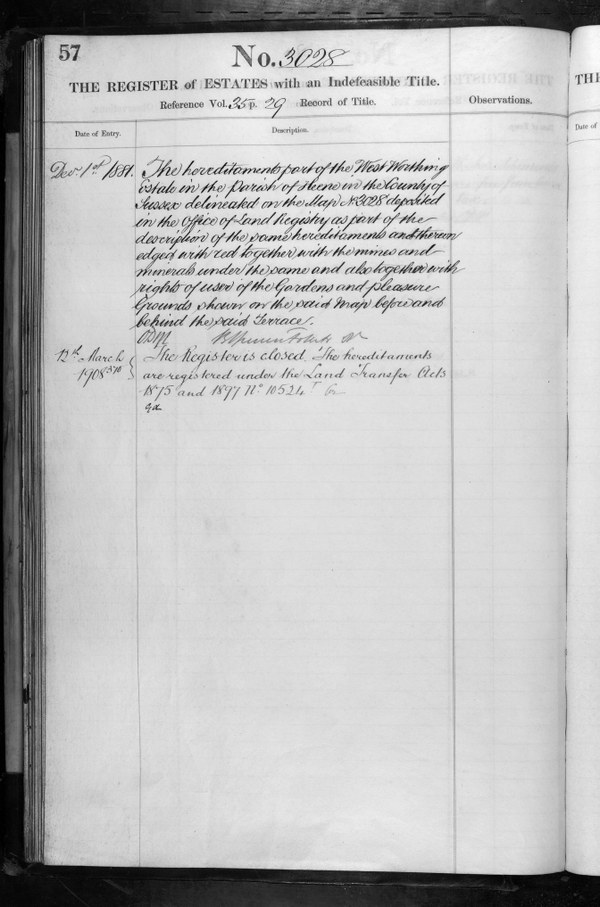 57
No. 3028
THE REGISTER of ESTATES with an Indefeasible Title.
Reference Vol. 35 p. 29 Record of Title.
Observations.
Date of Entry.
Description.
Decr 1st 1881.
The hereditaments part of the West Worthing
Estate in the Parish of Heene in the County of
Sussex delineated on the Map No 3028 deposited
in the Office of Land Registry as part of the
description of the same hereditaments and thereon
edged with red together with the mines and
minerals under the same and also together with
rights of user of the Gardens and pleasure
Grounds shewn on the said Map before and
behind the said Terrace.
12th March
1908
The Register is closed. The hereditaments
are registered under the Land Transfer Acts
1875 and 1897 No 10524
TH
Date of